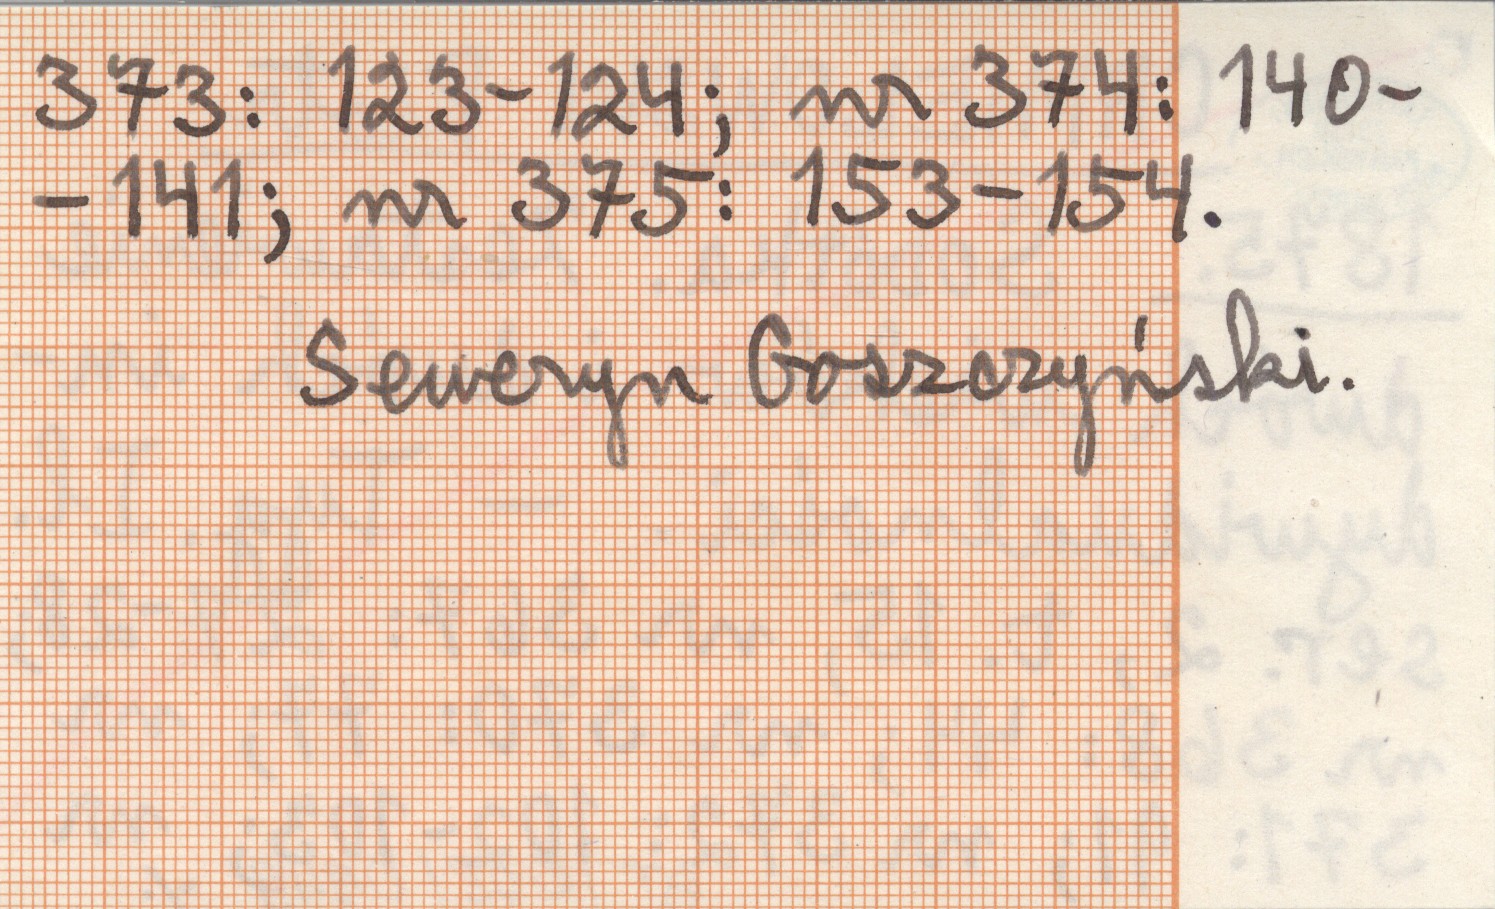 373: 123-124; nr 374: 140-
-141; nr 375: 153-154.
Seweryn Goszczyński.